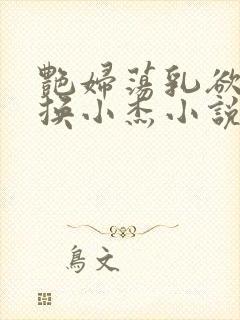 艷婦蕩乳欲
换小杰小說
鳥文